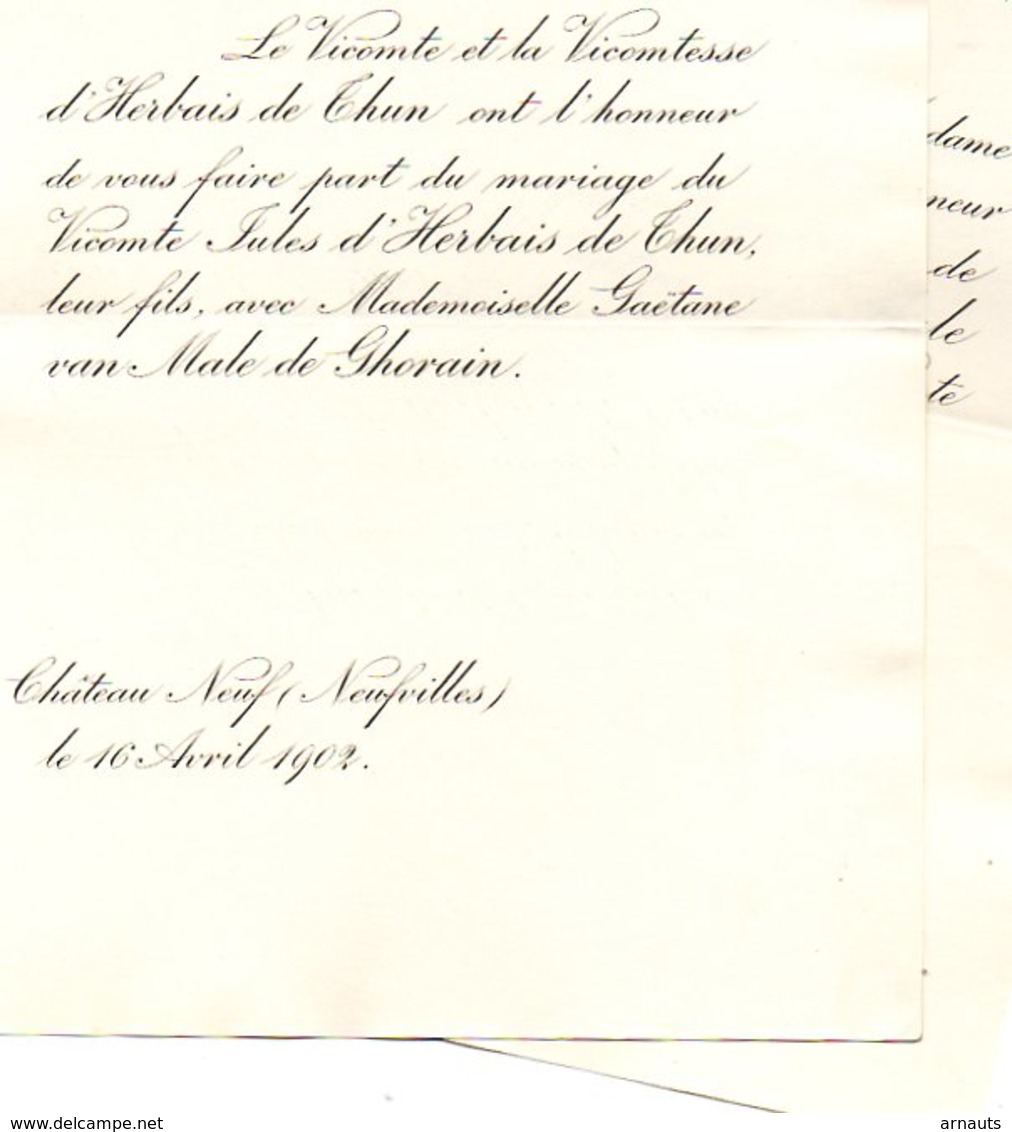 Le Vicomte et la Vicomtesse
d'Herbais de Thun ont l'honneur
de vous faire part du mariage du
Vicomte Jules d'Herbais de Thun,
leur fils, avec Mademoiselle Gaëtane
van Male de Ghorain.
Château Neuf (Neufvilles)
le 16 Avril 1902.
dame
neur
de
le
te
www.delcampe.net
arnauts